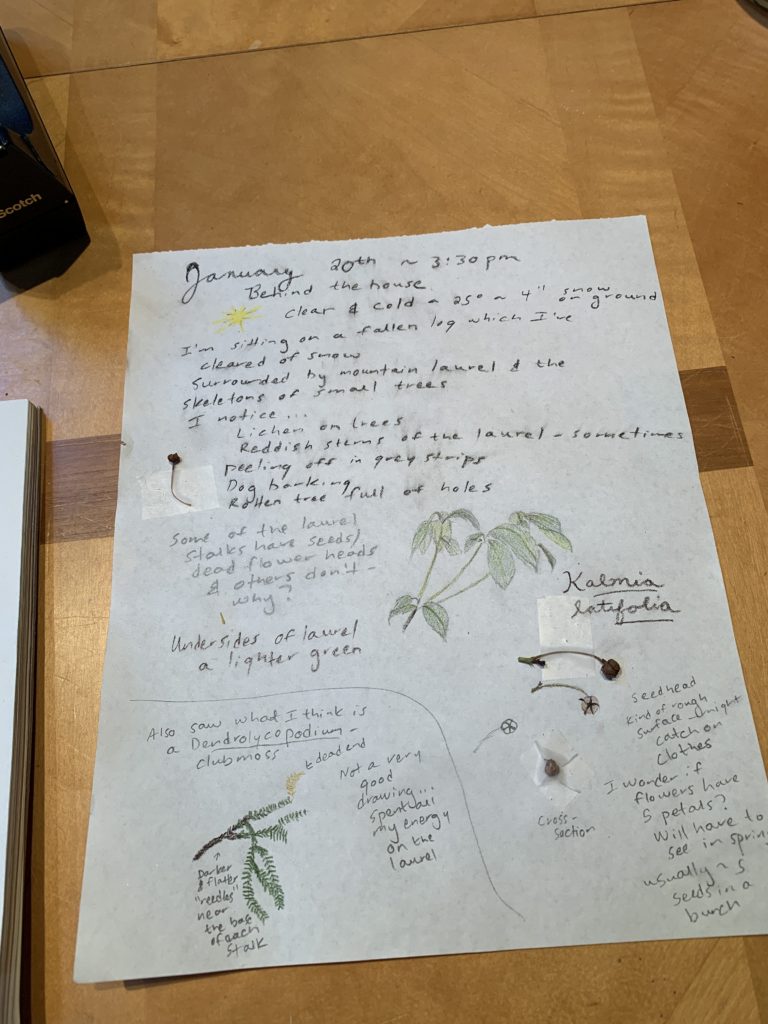 Scotch
January 20th ~ 3:30pm
Behind the house
clear & cold ~ 25° ~ 4" snow
on ground
I'm sitting on a fallen log which I've
cleared of snow
Surrounded by mountain laurel & the
skeletons of small trees
I notice...
Lichen on trees
Reddish stems of the laurel - sometimes
peeling off in grey strips
Dog barking
Rotten tree full of holes
Some of the laurel
stalks have seeds/
dead flower heads
& others don't -
why?
Undersides of laurel
a lighter green
Kalmia
latifolia
Seedhead
Kind of rough
surface - might
catch on
clothes
I wonder if
flowers have
5 petals?
Will have to
see in spring
usually ~ 5
seeds in a
bunch
Cross-
section
Also saw what I think is
a Dendrolycopodium -
clubmoss
dead end
Not a very
good
drawing...
spent all
my energy
on the
laurel
Darker
& flatter
"needles"
near
the base
of each
stalk